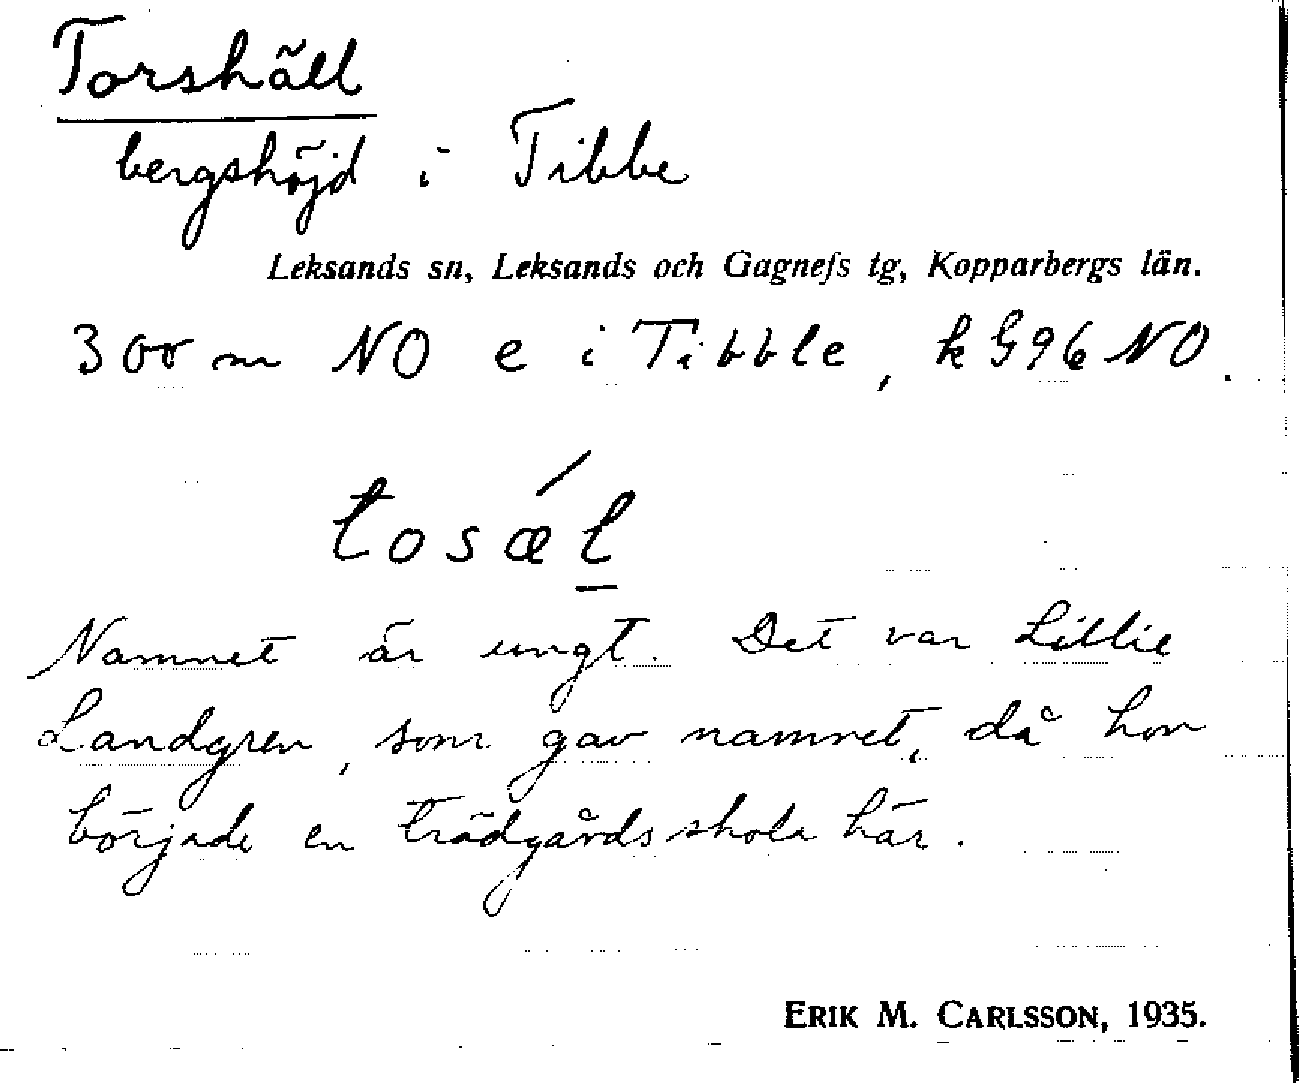 Torshäll
bergshöjd i Tibbe
Leksands sn, Leksands och Gagnefs tg, Kopparbergs län.
300 m NO e i Tibble, k G96 NO.
tosǽl
Namnet är ungt. Det var Lillie
Landgren, som gav namnet, då hon
började en trädgårdsskola här.
ERIK M. CARLSSON, 1935.